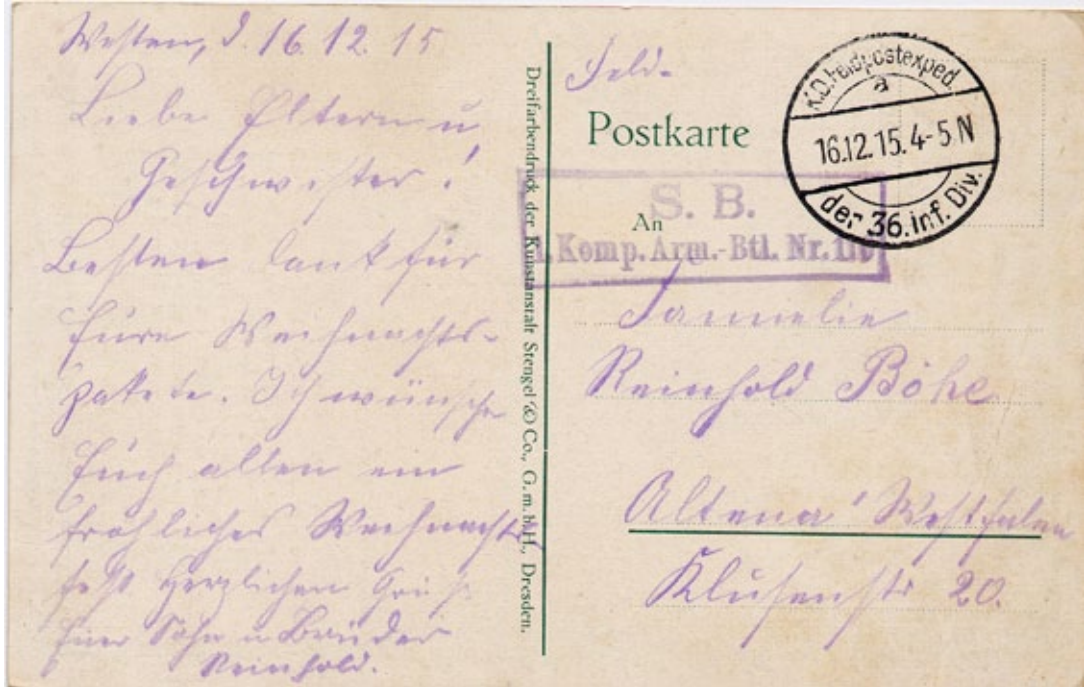 Westen, d. 16.12.15
Liebe Eltern u
Geschwister!
Besten Dank für
Eure Weihnachts-
pakete. Ich wünsche
Euch allen ein
fröhliches Weihnachts
fest Herzlichen Gruß
Euer Sohn u Bruder
Reinhold.
Dreifarbendruck der Kunstanstalt Stengel & Co., G. m. b. H., Dresden.
Feld-
Postkarte
K.D. Feldpostexped.
a
16.12.15. 4-5 N
der 36. Inf. Div.
S. B.
Komp. Arm.-Btl. Nr.
An
Familie
Reinhold
Altena Westfalen
Klusenstr 20.